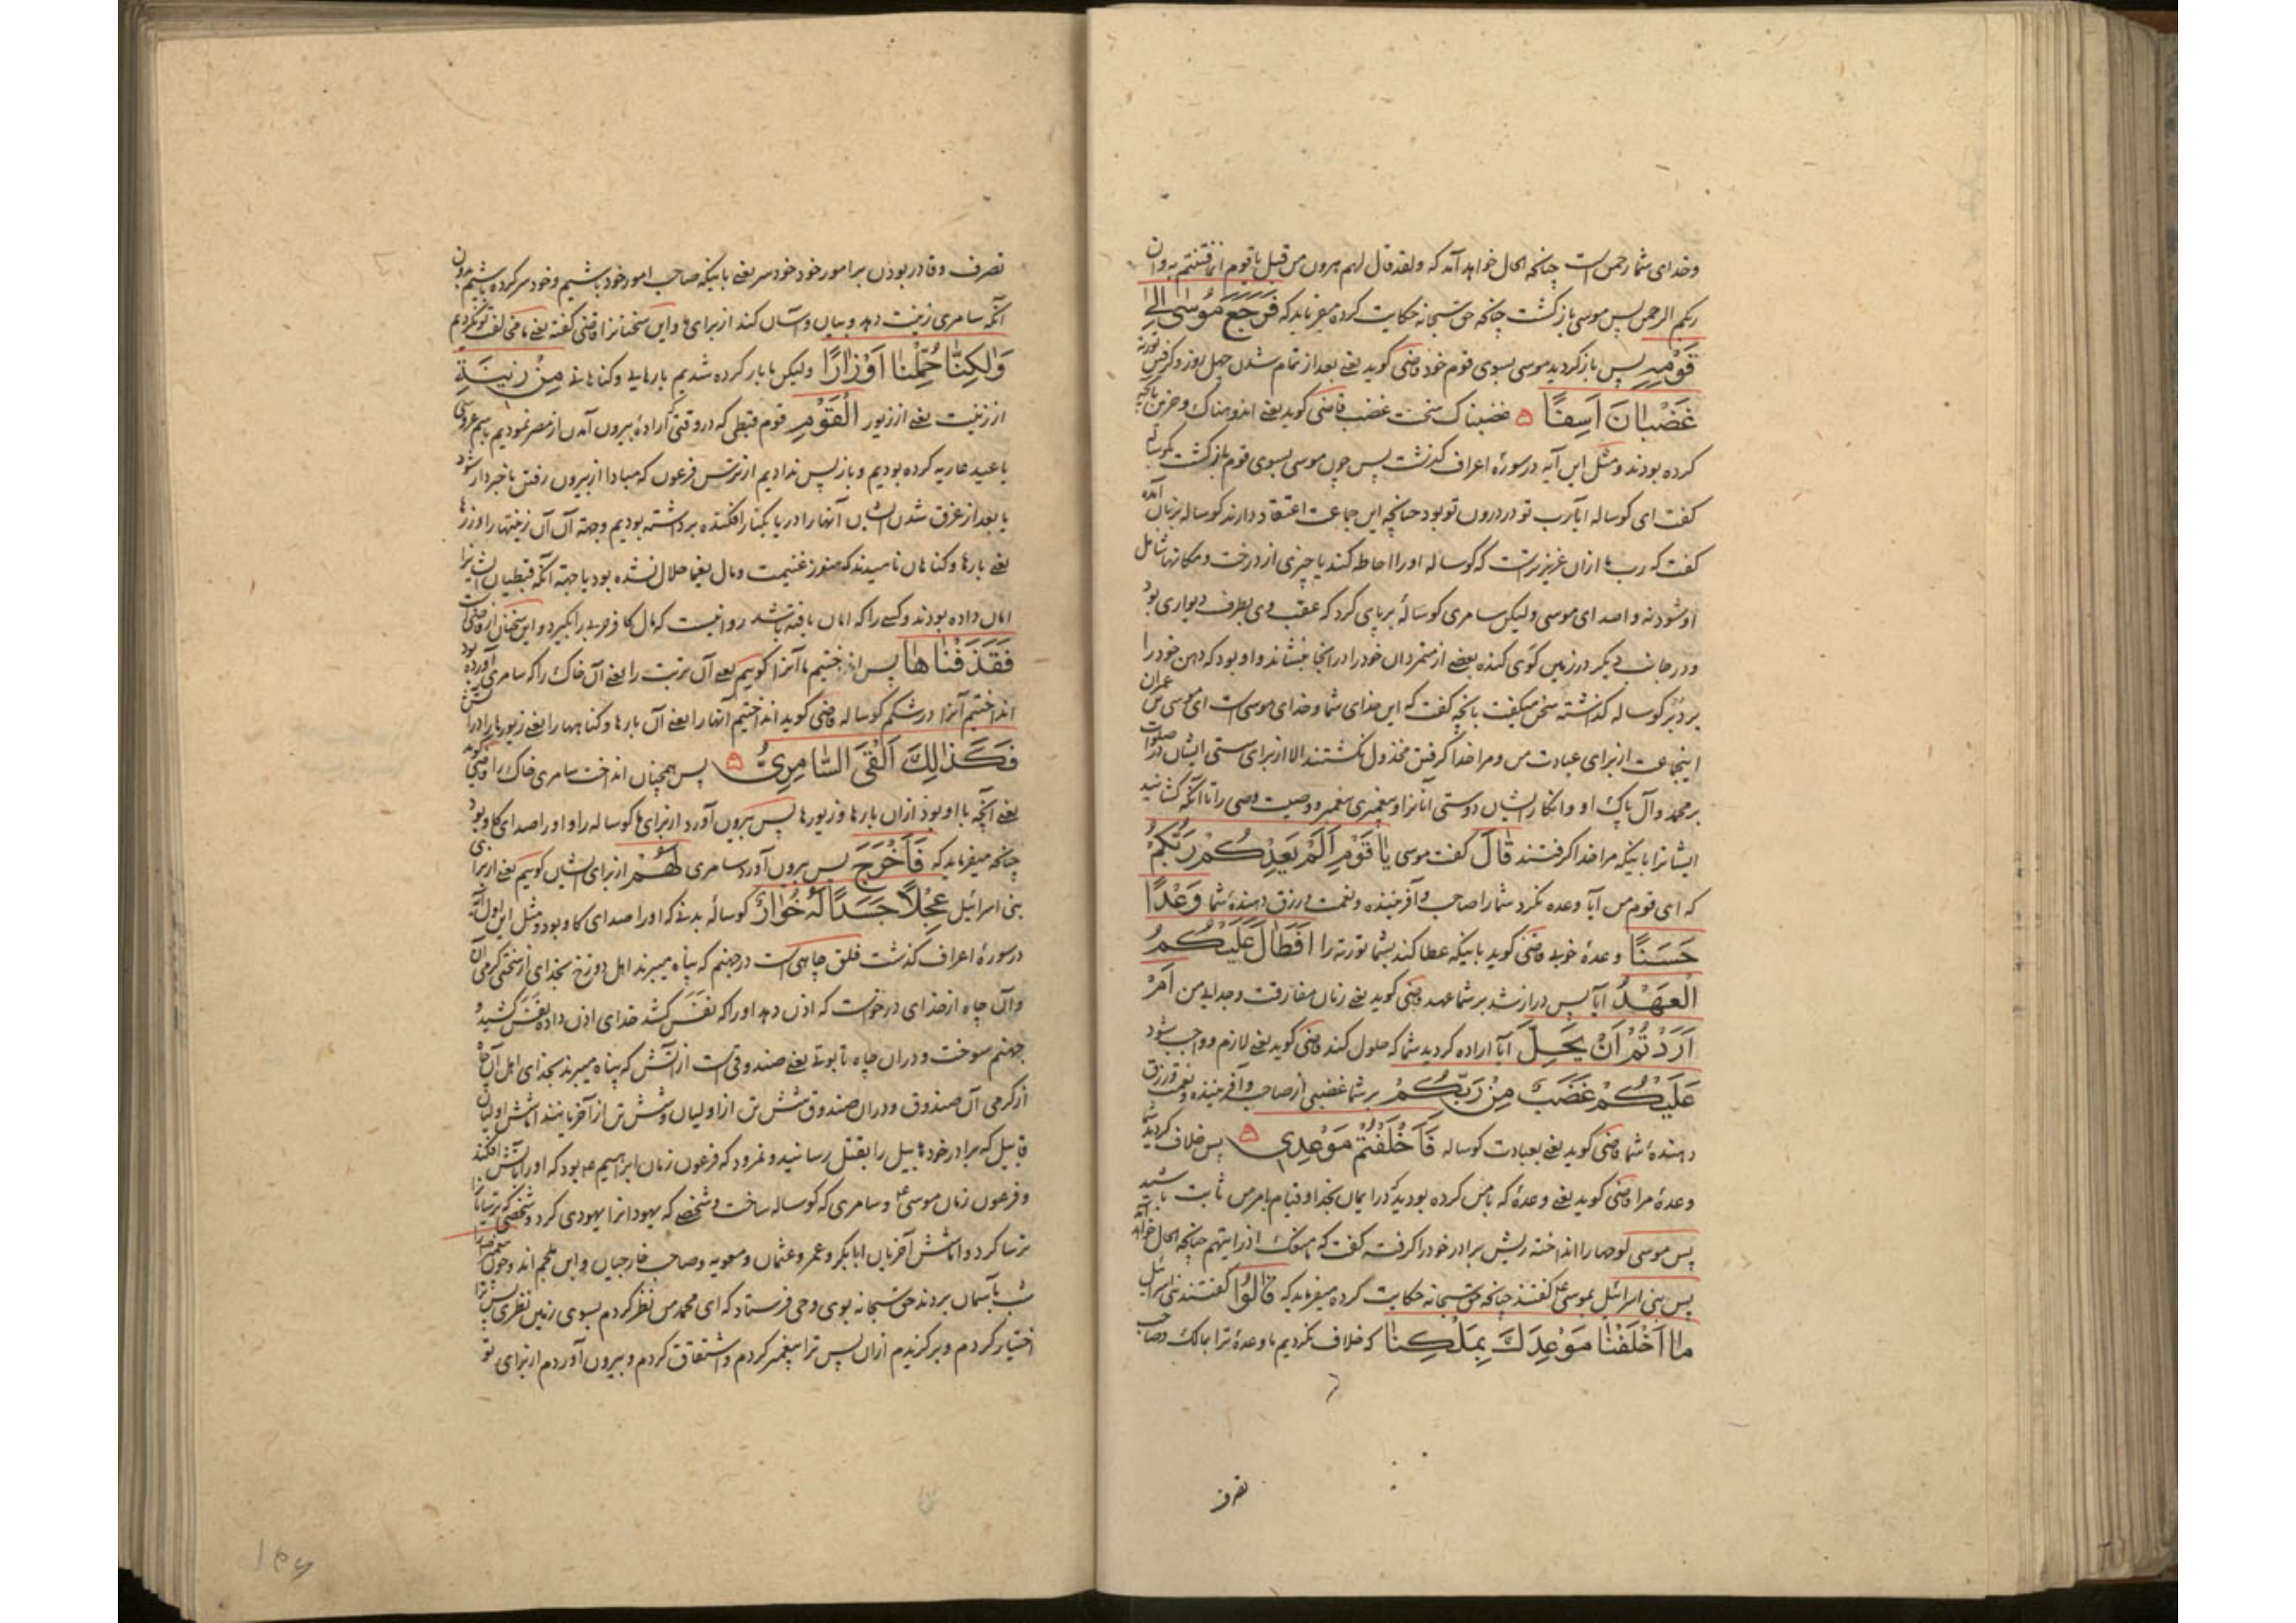 وخدای شما رحمن است چنانچه الحال خواهد آمد که ولقد قال لهم هرون من قبل یا قوم انما فتنتم به وان
ربکم الرحمن پس موسی بازگشت چنانچه حق سبحانه حکایت کرده میفرماید که فَرَجَعَ مُوسٰی اِلٰی
قَوْمِهِ پس بازگردید موسی بسوی قوم خود قاضی کوید یعنی بعد از تمام شدن چهل روز وگرفتن تورته
غَضْبٰانَ اَسِفًا ۵ غضبناک سخت غضب قاضی کوید یعنی اندوهناک وحزین بآنچه
کرده بودند ومثل این آیه در سورۀ اعراف گذشت پس چون موسی بسوی قوم بازگشت بکوساله
گفت ای کوساله آیا رب تو در درون تو بود چنانچه این جماعت اعتقاد دارند کوساله بزبان آمده
گفت که رب ما ازان عزیزتر است که کوساله اورا احاطه کند یا چیزی از درخت ومکانها شامل
او شود نه واصدای موسی ولیکن سامری کوسالۀ برپای کرد که عقب وی بطرف دیواری بود
ودر جانب دیکر در زمین کوی کنده بعضی از متمردان خود را در آنجا بنشاند واو بود که دهن خود را
بر دبر کوساله گذاشته سخن میگفت بآنچه گفت که این خدای شما وخدای موسی است ای موسی بن عمران
اینجماعت از برای عبادت من ومرا خدا گرفتن مخذول نکشتند الا از برای سستی ایشان در صلوات
بر محمد وآل پاک او وانکار ایشان دوستی آنانرا وپیغمبری پیغمبر ووصیت وصی را تا آنکه کشانید
ایشانرا باینکه مرا خدا گرفتند قٰالَ گفت موسی یٰا قَوْمِ اَلَمْ یَعِدْكُمْ رَبُّكُمْ
که ای قوم من آیا وعده نکرد شما را صاحب وآفریننده ونعمت ورزق دهندۀ شما وَعْدًا
حَسَنًا وعدۀ خوب قاضی کوید باینکه عطا کند بشما تورته را اَفَطٰالَ عَلَیْكُمُ
الْعَهْدُ آیا پس دراز شد بر شما عهد قاضی کوید یعنی زمان مفارقت وجدایی من اَمْ
اَرَدْتُمْ اَنْ یَحِلَّ آیا اراده کردید شما که حلول کند قاضی کوید یعنی لازم وواجب شود
عَلَیْكُمْ غَضَبٌ مِنْ رَبِّكُمْ بر شما غضبی از صاحب وآفریننده ونعمت ورزق
دهندۀ شما قاضی کوید یعنی بعبادت کوساله فَاَخْلَفْتُمْ مَوْعِدِی ۵ پس خلاف کردید شما
وعدۀ مرا قاضی کوید یعنی وعدۀ که بامن کرده بودید که در ایمان بخدا وقیام بامر من ثابت باشید
پس موسی لوحها را انداخته ریش برادر خود را گرفته گفت که ما منعک اذ رایتهم چنانچه الحال خواهد آمد
پس بنی اسرائیل بموسی گفتند چنانچه حق سبحانه حکایت کرده میفرماید که قٰالُوا گفتند بنی اسرائیل
مٰا اَخْلَفْنٰا مَوْعِدَكَ بِمَلْكِنٰا که خلاف نکردیم ما وعدۀ ترا بمالک وصاحب
تصرف
تصرف وقادر بودن بر امور خود خودسر یعنی باینکه صاحب امور خود باشیم وخود سر کرده باشیم بدون
آنکه سامری زینت دهد وبیان وآسان کند از برای ما واین سخنانرا قاضی گفته یعنی ما مخالفت تو نکردیم
وَلٰكِنّٰا حُمِّلْنٰا اَوْزٰارًا ولیکن ما بار کرده شدیم بارهایی وکناهانی مِنْ زِینَةِ
از زینت یعنی از زیور الْقَوْمِ قوم قبطی که در وقتی ارادۀ بیرون آمدن از مصر نمودیم باسم عروسی
یا عید عاریه کرده بودیم وباز پس ندادیم از ترس فرعون که مبادا از بیرون رفتن ما خبردار شود
یا بعد از غرق شدن ایشان آنها را دریا بکنار افکنده برداشته بودیم وجهة آن آن زینتها را اوزارها
یعنی بارها وکناهان نامیدند که هنوز غنیمت ومال یغما حلال نشده بود یا جهة آنکه قبطیان ایشانرا
امان داده بودند وکسی را که امان یافته باشد روا نیست که مال کافر حربی را بگیرد واین سخنان از قاضی است
فَقَذَفْنٰاهٰا پس انداختیم ما آنرا کوییم یعنی آن تربت را یعنی آن خاک را که سامری آورده بود
انداختیم آنرا در شکم کوساله قاضی کوید انداختیم آنها را یعنی آن بارها وکناهها را یعنی زیورها را در آتش
فَكَذٰلِكَ اَلْقَی السّٰامِرِیُّ ۵ پس همچنان انداخت سامری خاک را قاضی کوید
یعنی آنچه با او بود ازان بارها وزیورها پس بیرون آورد از برای ما کوساله را واورا صدای کاو بود
چنانچه میفرماید که فَاَخْرَجَ پس بیرون آورد سامری لَهُمْ از برای ایشان کوییم یعنی از برای
بنی اسرائیل عِجْلًا جَسَدًا لَهُ خُوٰارٌ کوسالۀ بدنی که اورا صدای کاو بود ومثل این اول آیه
در سورۀ اعراف گذشت فلق چاهی است در جهنم که پناه میبرند اهل دوزخ بخدای از سختی گرمی آن
وآن چاه از خدای درخواست که اذن دهد اورا که نفس کشد خدای اذن داده نفس کشید و
جهنم سوخت ودران چاه تابوتی یعنی صندوقی است از آتش که پناه میبرند بخدای اهل آن چاه
از گرمی آن صندوق ودران صندوق شش تن از اولیان وشش تن از آخریانند اما شش اولیان
قابیل که برادر خود هابیل را بقتل رسانید ونمرود که فرعون زمان ابراهیم بود که اورا بآتش افکند
وفرعون زمان موسی وسامری که کوساله ساخت وشخصی که یهودانرا یهودی کرد وشخصی که ترسایانرا
ترسا کرد واما شش آخریان ابابکر وعمر وعثمان ومعویه وصاحب خارجیان وابن ملجم اند وچون
بآسمان بردند حق سبحانه بوی وحی فرستاد که ای محمد من نظر کردم بسوی زمین نظری پس ترا
اختیار کردم وبرگزیدم ازان پس ترا پیغمبر کردم واشتقاق کردم وبیرون آوردم از برای تو